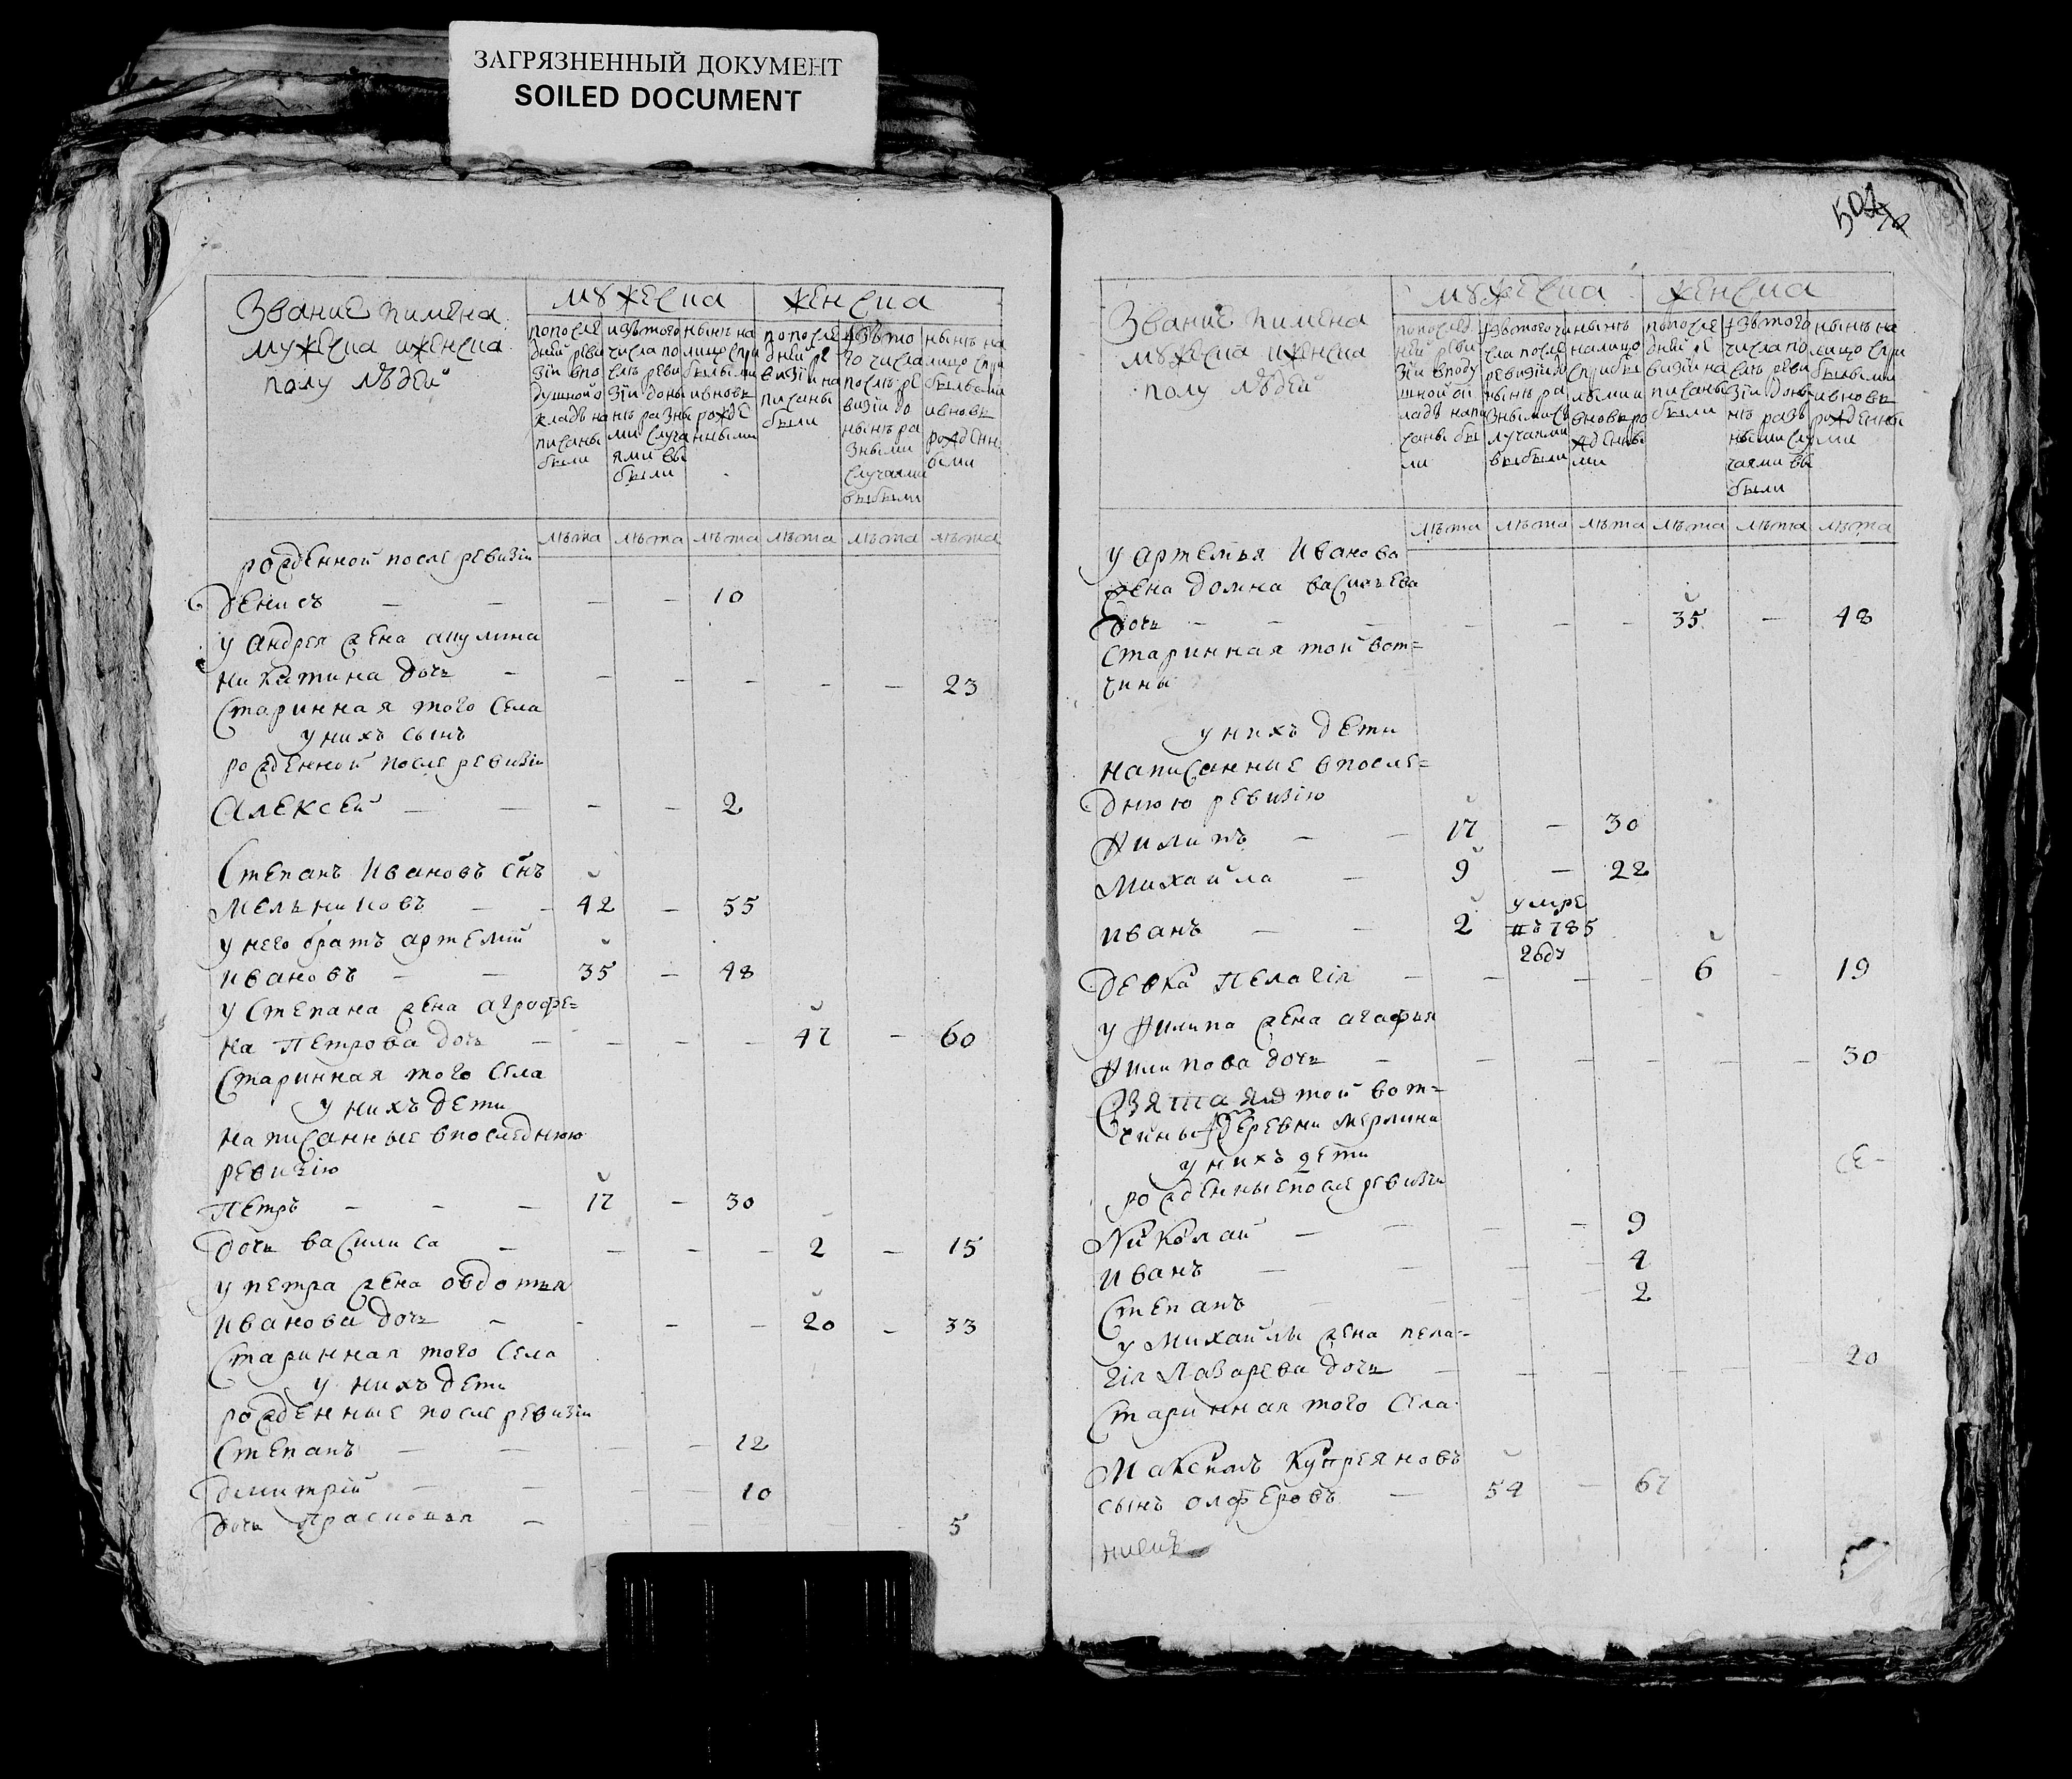 ЗАГРЯЗНЕННЫЙ ДОКУМЕНТ
SOILED DOCUMENT
Званиe и имена
мужеска и женска
полу людей
мужеска
женска
по после
дней реви
зiи в по
душной о
кладъ на
писаны
были
изъ того
числа по
слѣ реви
зiи до ны
нѣ разны
ми случа
ями вы
были
нынѣ на
лицо с при
былыми
и вновь
рожде
нными
по после
дней ре
визiи на
писаны
были
изъ то
го числа
послѣ ре
визiи до
нынѣ ра
зными
случаями
выбыли
нынѣ на
лицо с при
былыми
и вновь
рожденн
ыми
лѣта лѣта лѣта лѣта лѣта лѣта
рожденной после ревизiи
Денисъ — — — — 10
у андрея жена акулина
никитина дочь — — — — — — 23
Старинная того села
у нихъ сынъ
рожденной после ревизiи
Алексей — — — — 2
Степанъ Ивановъ снъ
мельниковъ — — 42 — 55
у него братъ артемiй
ивановъ — — 35 — 48
у Степана жена аграфе=
на Петрова дочь — — — — — 47 — 60
Старинная того села
у нихъ дети
написанные в последнюю
ревизiю
Петръ — — — 17 — 30
дочь василиса — — — — 2 — 15
у петра жена овдотья
Иванова дочь — — — — 20 — 33
Старинная того села
у нихъ дети
рожденные после ревизiи
Степанъ — — — — 12
дмитрiй — — — 10
дочь Прасковья — — — — 5
502
Званиe и имена
мужеска и женска
полу людей
мужеска
женска
по послед
ней реви
зiи в поду
шной ок
ладъ напи
саны бы
ли
изъ того чи
сла после
ревизiи до
нынѣ ра
зными с
лучаями
выбыли
нынѣ
на лицо
с прибы
лыми и
вновь ро
жденны
ми
по после
дней ре
визiи на
писаны
были
изъ того
числа по
слѣ реви
зiи до ны
нѣ разъ
ными слу
чаями вы
были
нынѣ на
лицо с при
былыми
и вновь
рожденны
ми
лѣта лѣта лѣта лѣта лѣта лѣта
у артемья Иванова
жена домна васильева
дочь — — — — — — 35 — 48
Старинная той вот=
чины
у нихъ дети
написанные в после=
днюю ревизiю
Филипъ — — 17 — 30
Михайла — 9 — 22
иванъ — — 2 умре
въ 785
году
девка Пелагiя — — — — 6 — 19
у Филипа жена агафья
Филипова дочь — — — — — — — 30
взятая той вот=
чины деревни мерлина
у нихъ дети
рожденные после ревизiи
Николай — — — — 9
Иванъ — — — — 4
Степанъ — — — — 2
у Михайлы жена пела=
гiя Лазарева дочь — — — — — — 20
Старинная того села
Максимъ Купреяновъ
сынъ олферовъ — 54 — 67